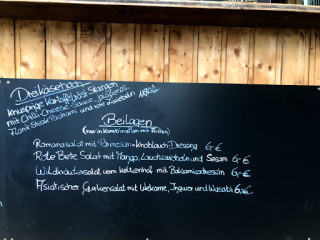 Dreikäsehoch
knusprige Kartoffel
mit Chilli-Cheese Sauce,
Flank Steak Pastrami und rote Zwiebeln
Beilagen
(nur in Kombination mit
Romanasalat mit Parmesan-Knoblauch Dressing 6,-€
Rote Bete Salat mit Mango, Lauchzwiebeln und Sesam 6,-€
Wildkräutersalat vom Keltenhof mit Balsamicodressing 6,-€
Asiatischer Gurkensalat mit Wakame, Ingwer und Wasabi 6,-€